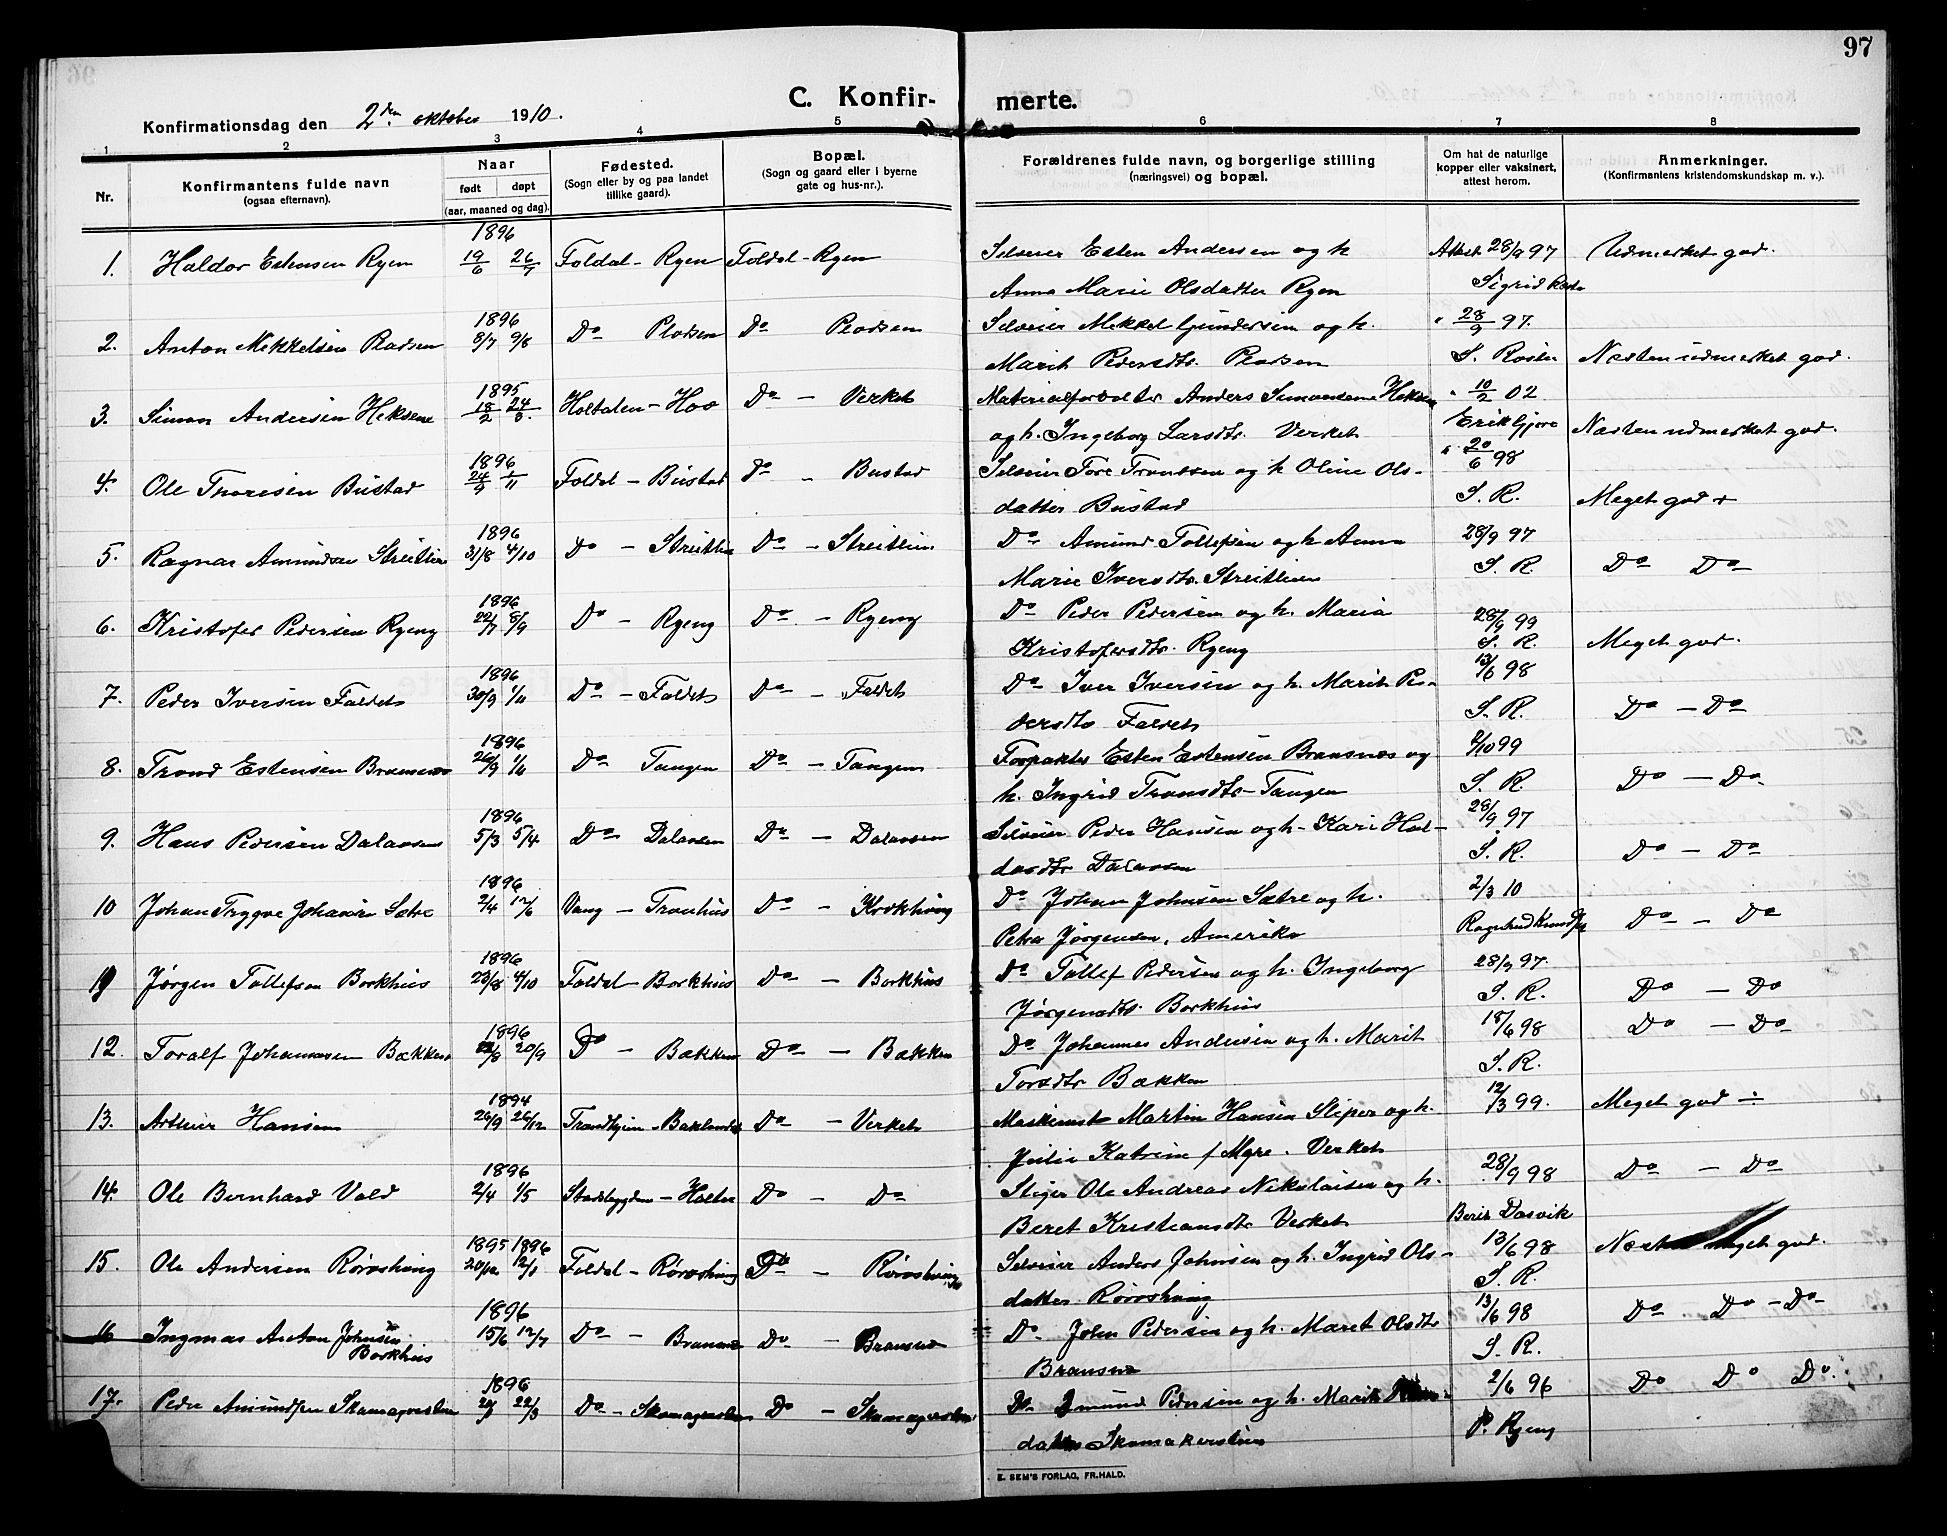 97
C. Konfir- merte.
Konfirmationsdag den 2den oktober 1910.
1 2 3 4 5 6 7 8
Nr. Konfirmantens fulde navn (ogsaa efternavn). Naar født døpt (aar, maaned og dag). Fødested. (Sogn eller by og paa landet tillike gaard). Bopæl. (Sogn og gaard eller i byerne gate og hus-nr.). Forældrenes fulde navn, og borgerlige stilling (næringsvei) og bopæl. Om hat de naturlige kopper eller vaksinert, attest herom. Anmerkninger. (Konfirmantens kristendomskundskap m. v.).
1896
1. Haldor Estensen Ryen 19/6 26/7 Foldal - Ryen Foldal - Ryen Selveier Esten Andersen og h Attest 28/9 97 Udmerket god.
Anna Marie Olsdatter Ryen Sigrid Røste
1896
2. Anton Mikkelsen Plassen 8/7 9/8 Do Plassen Do Plassen Selveier Mikkel Gundersen og h. " 28/9 97.
Marit Pedersdtr. Plassen S. Røste Næsten udmerket god.
1895
3. Simon Andersen Heksem 18/2 24/3. Holtalen - Hov Do - Verket Materialforvalter Anders Simonsen Heksem " 10/2 02
og h. Ingeborg Larsdtr. Verket Erik Gjøra Næsten udmerket god.
1896
4. Ole Thoresen Bustad 24/9 1/11 Foldal - Bustad Do - Bustad Selveier Tore Tronssen og h Oline Ols- " 20/6 98
datter Bustad S. R. Meget god +
1896
5. Ragnar Amundsen Streitlien 31/8 4/10 Do - Streitlien Do - Streitlien Do Amund Tollefsen og h Anna 28/9 97
Marie Iversdtr. Streitlien S. R. Do Do
1896
6. Kristofer Pedersen Ryeng 22/7 8/9 Do - Ryeng Do - Ryeng Do Peder Pedersen og h. Maria 28/9 99
Kristofersdtr. Ryeng S. R. Meget god.
1896
7. Peder Iversen Faldet 30/9 1/11 Do - Faldet Do - Faldet Do Iver Iversen og h. Marit Pe- 13/6 98
dersdtr Faldet S. R. Do - Do
1896
8. Trond Estensen Brænsnes 26/9 1/11 Do Tangen Do - Tangen Forpakter Esten Estensen Brænsnes og 2/10 99
h. Ingrid Tronsdtr - Tangen S. R. Do - Do
1896
9. Hans Pedersen Dalaasen 5/3 5/4 Do Dalaasen Do - Dalaasen Selveier Peder Hansen og h - Kari Hal- 28/9 97
dorsdtr Dalaasen S. R. Do - Do
1896
10 Johan Trygve Johansen Sætre 2/4 12/6 Vang - Tronhus Do - Krokhaug Do Johan Johnsen Sætre og h. 2/3 10
Petra Jørgensen, Amerika Do - Do
1896
11 Jørgen Tollefsen Borkhus 23/8 4/10 Foldal - Borkhus Do - Borkhus Do Tollef Pedersen og h. Ingeborg 28/9 97.
Jørgensdtr. Borkhus S. R. Do - Do
1896
12. Toralf Johannessen Bækken 20/9 Do - Bækken Do - Bækken Do Johannes Andersen og h. Marit 18/6 98 Do - Do
Torsdtr Bækken S. R.
1894
13. Artur Hansen 26/9 26/12 Trondhjem - Baklandet Do - Verket Maskinist Martin Hansen Sliper og h. 12/3 99. Meget god ÷
Julie Katrine f Myre. Verket
1896
14. Ole Bernhard Vold 2/4 1/5 Stadsbygden - Do - Do Stiger Ole Andreas Nikolaisen og h. 28/9 98 Do - Do
Beret Kristiansdtr Verket Berit Dasvik
1895 1896
15. Ole Andersen Røroshaug 20/12 12/1 Foldal - Røroshaug Do - Røroshaug Selveier Anders Johnsen og h. Ingrid Ols- 13/6 98 Næsten meget god.
datter Røroshaug S. R.
1896
16 Ingmar Anton Johnsen 15/6 12/7 Do - Brænsne Do - Brænsne Do John Pedersen og h. Maret Olsdtr 13/6 98 Do Do - Do
Borkhus Brænsne S. R.
1896
17. Peder Amundsen Skomagerlien 22/3 Do - Skomagerlien Do - Skomagerlien Do Amund Pedersen og h. Marit 2/6 96 Do Do Do.
datter Skomakerlien P. Ryeng
E. SEM'S FORLAG, FR.HALD.